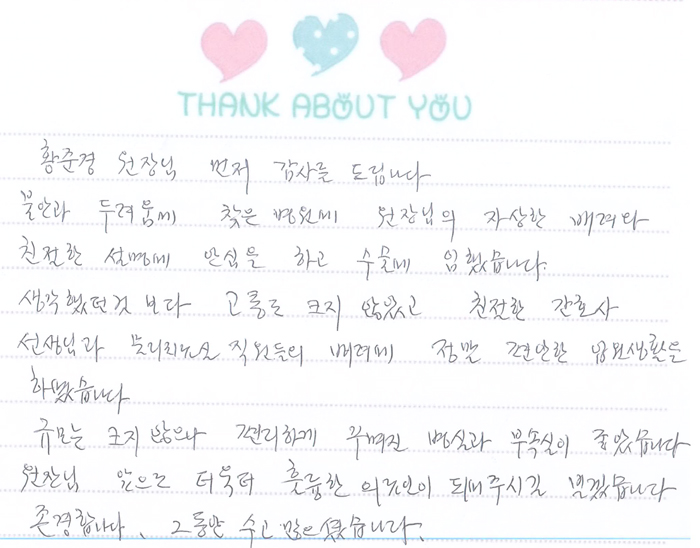 THANK ABOUT YOU
황준경 원장님 먼저 감사를 드립니다
불안과 두려움에 찾은 병원에 원장님의 자상한 배려와
친절한 설명에 안심을 하고 수술에 임했습니다.
생각했던것 보다 고통도 크지 않았고 친절한 간호사
선생님과 물리치료실 직원들의 배려에 정말 편안한 입원생활을
하였습니다
규모는 크지 않으나 편리하게 꾸며진 병실과 부속실이 좋았습니다
원장님 앞으로 더욱더 훌륭한 의료인이 되어주시길 빌겠습니다
존경합니다. 그동안 수고 많으셨습니다.